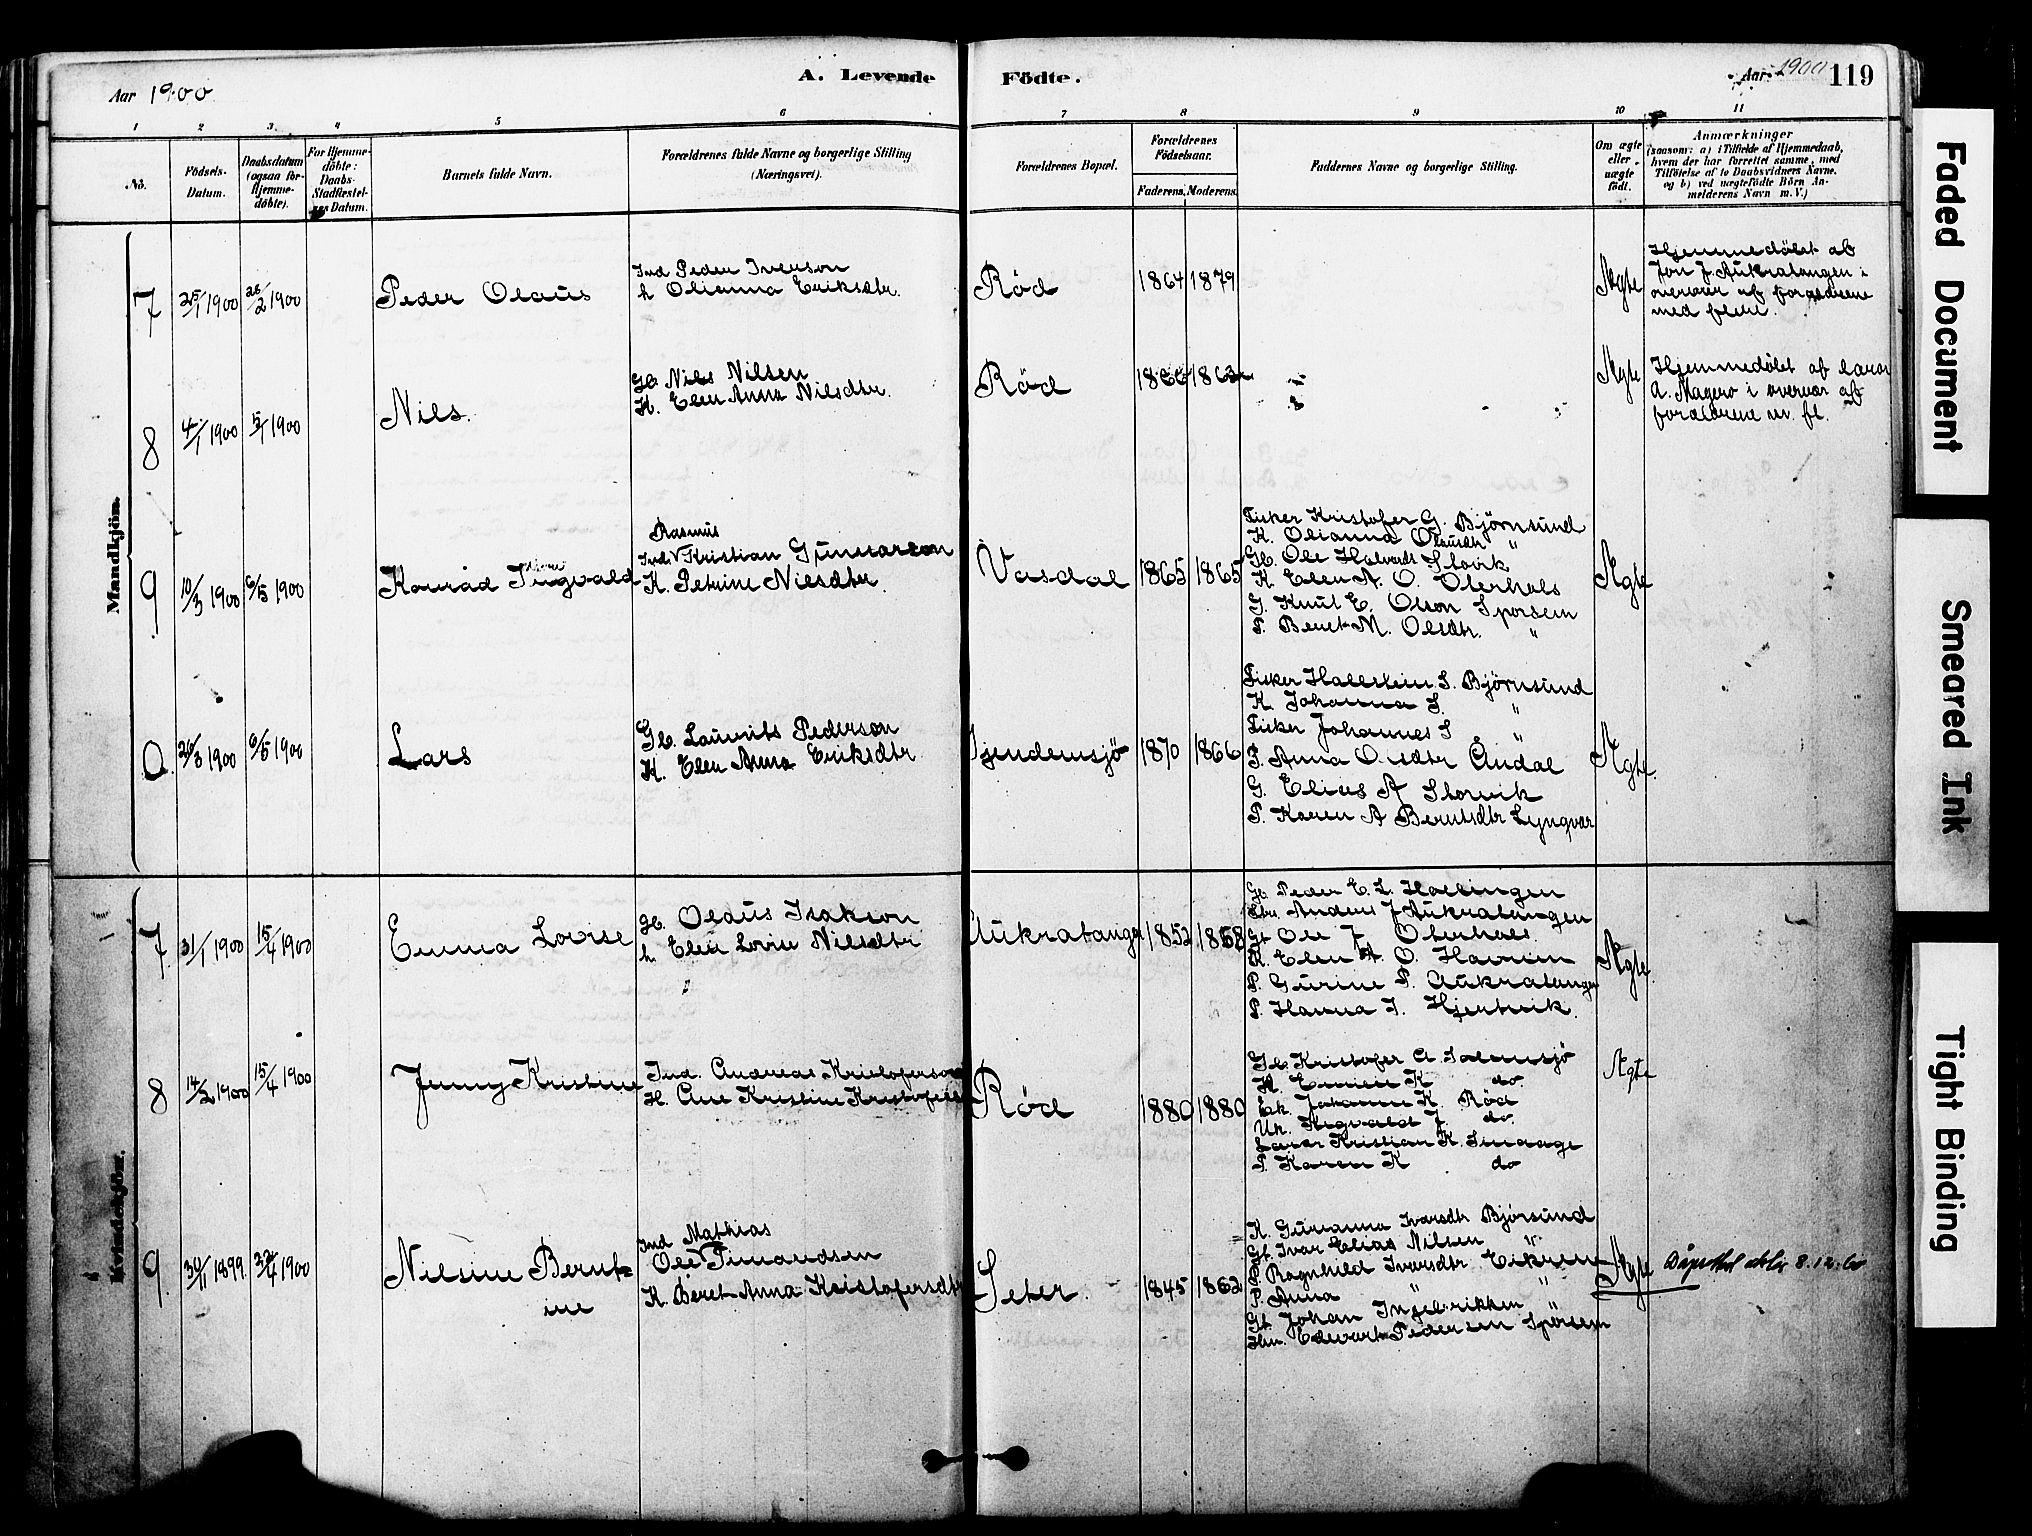 Aar 1900
A. Levende
Födte.
Aar 1900
119
1 2 3 4 5 6 7 8 9 10 11
No.
Födsels-
Datum.
Daabsdatum
(ogsaa for
Hjemme-
döbte).
For Hjemme-
döbte:
Daabs-
Stadfæstel-
ses Datum.
Barnets fulde Navn.
Forældrenes fulde Navne og borgerlige Stilling
(Næringsvei).
Forældrenes Bopæl.
Forældrenes
Födselsaar.
Faderens. Moderens.
Faddernes Navne og borgerlige Stilling.
Om ægte
eller
uægte
födt.
Anmærkninger
(saasom: a) i Tilfælde af Hjemmedaab,
hvem der har forrettet samme, med
Tilföielse af to Daabsvidners Navne,
og b) ved uægtefödte Börn An-
melderens Navn m. V.)
Mandkjön.
7
25/1 1900
26/2 1900
Peder Olaus
Ind Peder Iverson
h Olianna Eriksdtr.
Röd
1864 1879
Ægte
Hjemmedöbt af
Jon J. Aukratangen i
overvær af forældrene
med flere.
8
4/1 1900
5/1 1900
Nils.
Gb. Nils Nilsen
K. Elen Anna Nilsdtr.
Röd
1866 1862
Ægte
Hjemmedöbt af lærer
A. Magerö i overvær af
forældrene m. fl.
9
10/3 1900
6/5 1900
Konrad Ingvald
Rasmus
Ind Kristian Gunnarson
K. Petrine Nilsdtr
Vasdal
1865 1865
Fisker Kristofer G. Björnsund
K. Olianna Olausdtr "
Gb. Ole Halvards Storvik
K Elen A. O. Oterhals
G. Knut E. Olson Sporsem
P. Beret M. Olsdtr. "
Ægte
0
26/3 1900
6/5 1900
Lars
Gb. Laurits Pederson
K. Elen Anna Eriksdtr
Tjendemsjö
1870 1866
Fisker Hallstein S. Björnsund
K. Johanna S. "
Fisker Johannes S "
P. Anna O.sdtr Aandal
G. Elias A Storvik
P. Karen A Berntsdtr Lyngvær
Ægte
Kvindekjön.
7
31/1 1900
15/4 1900
Emma Lovise
Gb. Olaus Isakson
h. Elen Lovise Nilsdtr
"
Aukratangen
1852 1858
Gb. Peder E. L. Hallingen
Anders J Aukratangen
Gb Ole J. Oterhals
K. Elen A. O. Havnen
P. Gurine P. Aukratangen
P. Hanna I. Hjertvik.
Ægte
8
14/2 1900
15/4 1900
Jenny Kristine
Ind. Andreas Kristoferson
H. Ane Kristine Kristofersd
Röd
1880 1880
Gb. Kristofer A. Solemsjö
H. K do
Johanne K. Röd
Uk. Sigvald J. do
Lærer Kristian K. Smaage
P Karen K do
Ægte
9
30/11 1899
3/4 1900
Nilsine Bernt-
ine
Ind Mathias
Ole Timandsen
K. Beret Anna Kristofersdtr
Seter.
1845 1862
K. Gurianna Ivarsdtr Björsund
Gb. Ivar Elias Nilsen "
P Ragnhild Ivarsdtr Eikrem
P. Anna " "
Gb. Johan Ingebrikken
Edvart Pedersen Sporsem
Ægte
8.12.60
Faded Document
Smeared Ink
Tight Binding